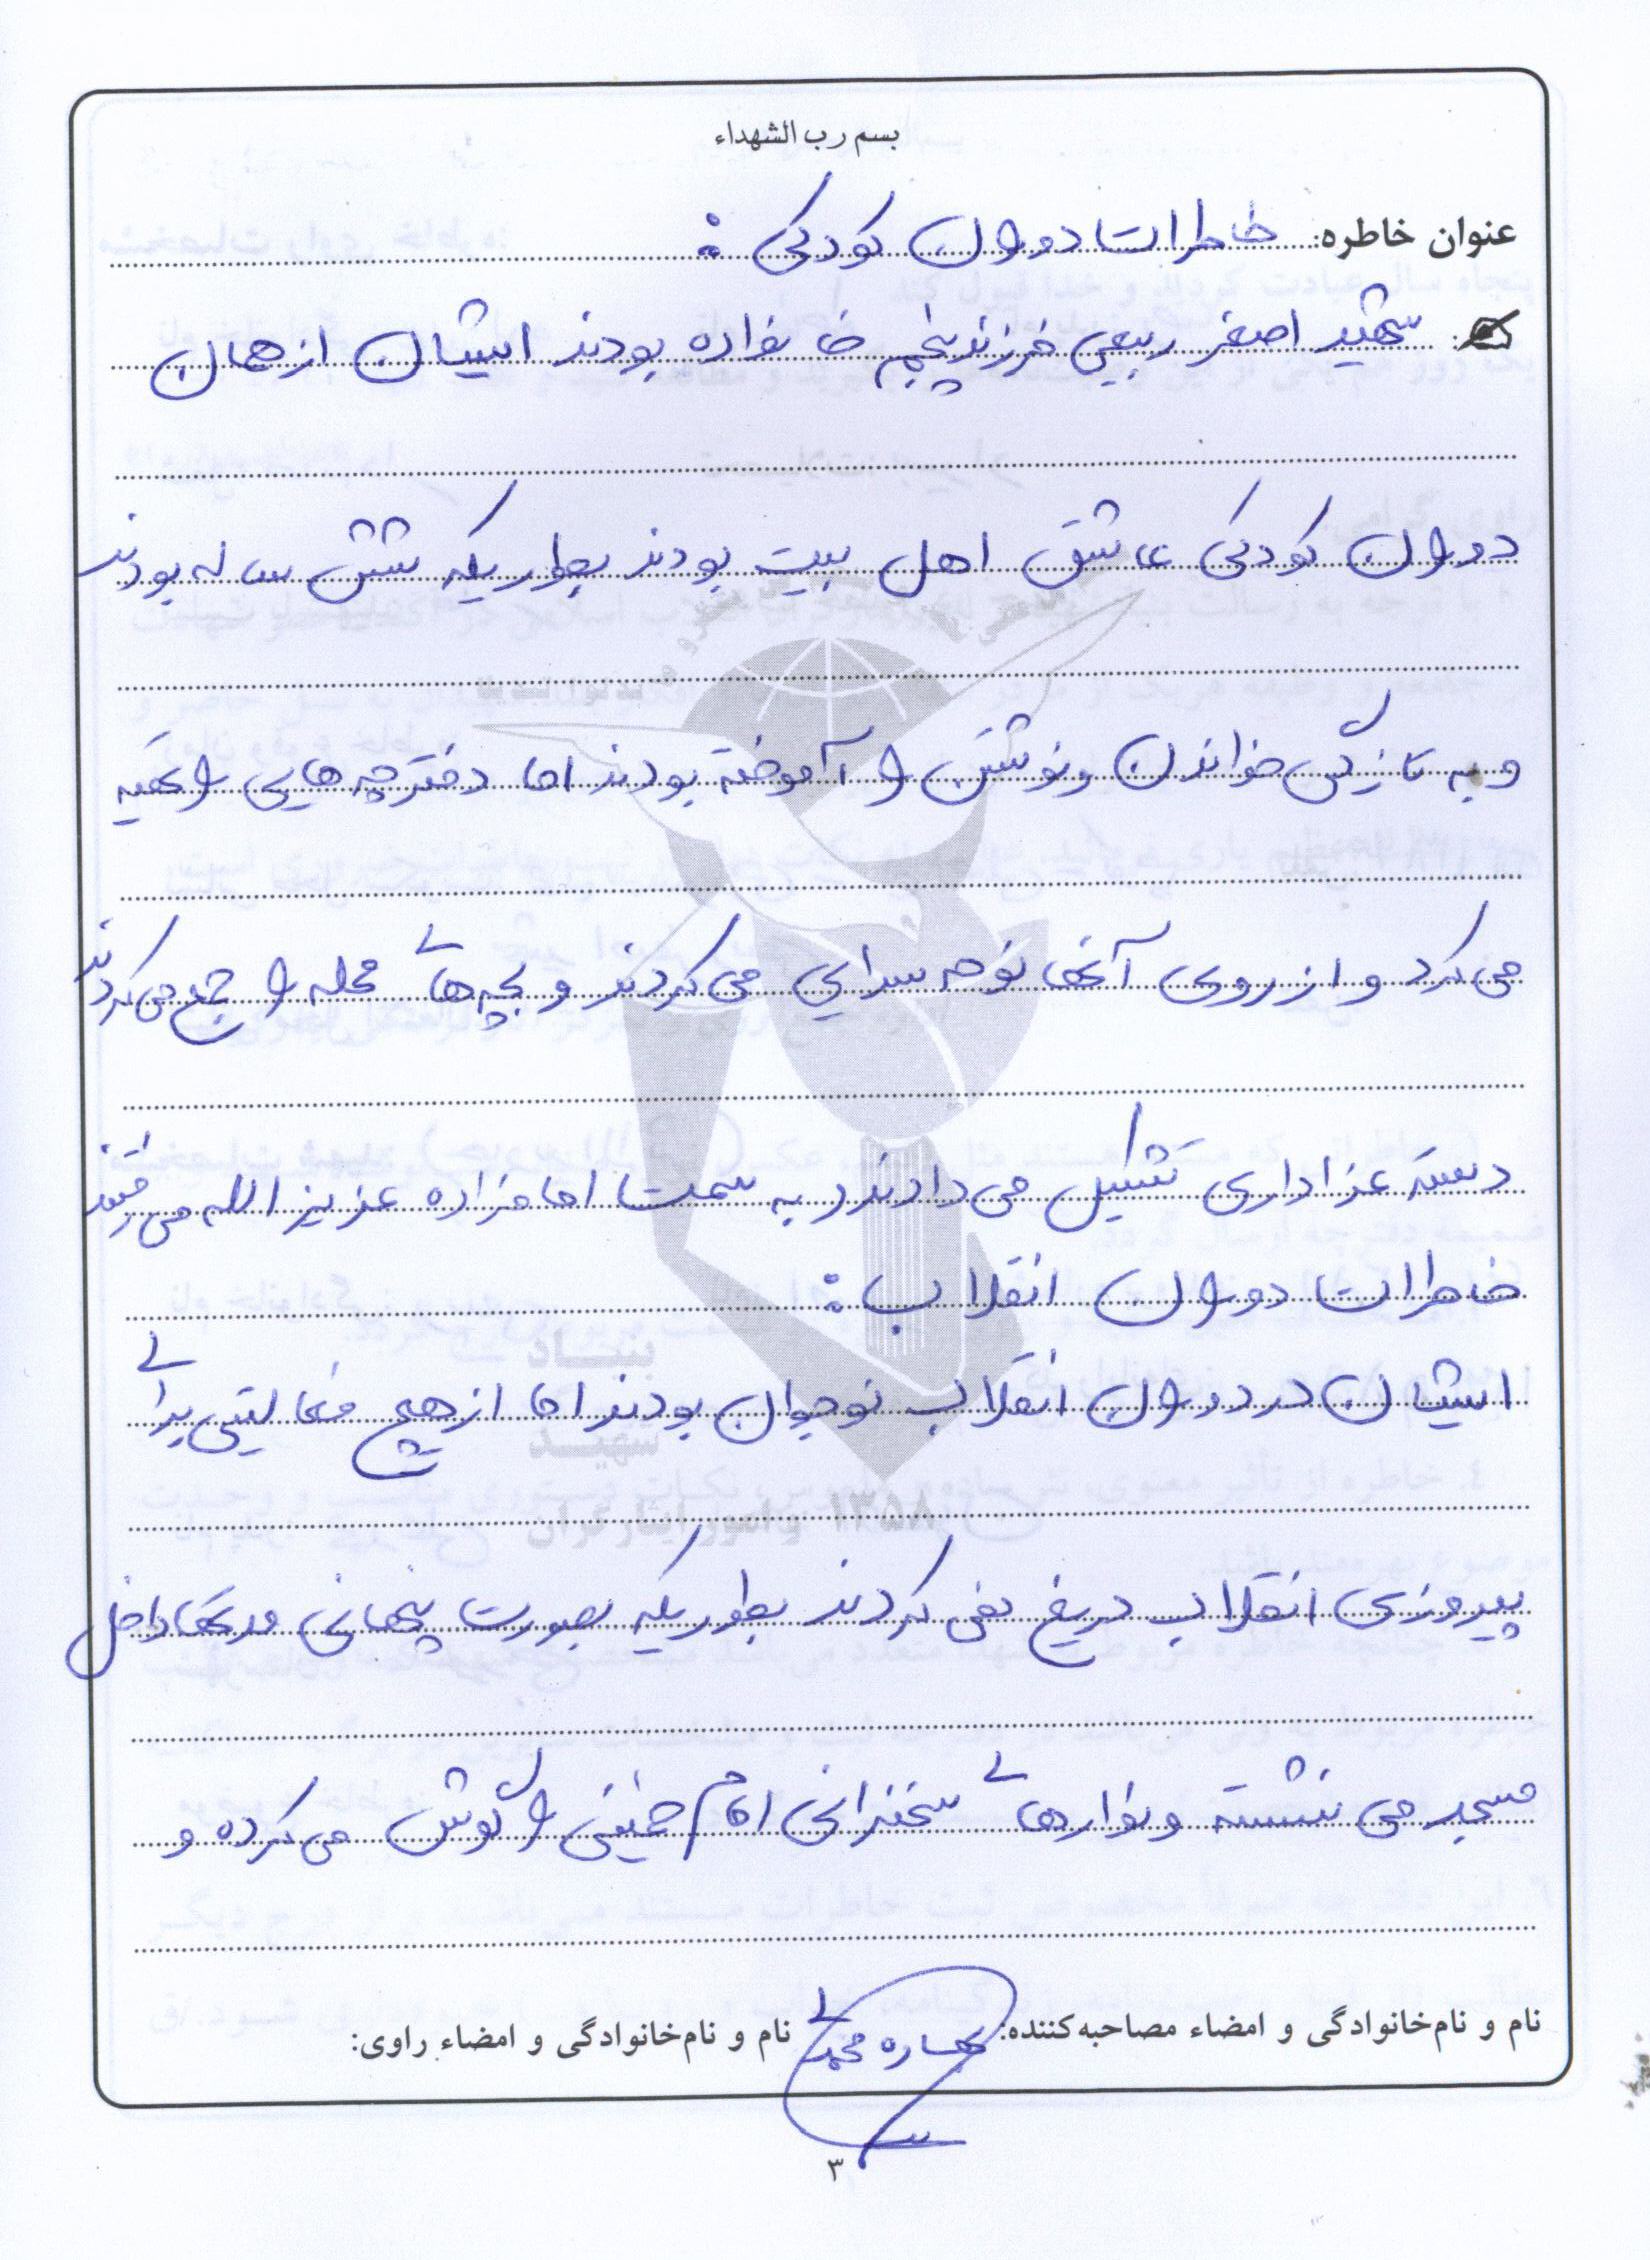 بسم رب الشهداء
عنوان خاطره: خاطرات دوران کودکی :
شهید اصغر ربیعی فرزند پنجم خانواده بودند ایشان از همان
دوران کودکی عاشق اهل بیت بودند بطوریکه شش ساله بودند
و به تازگی خواندن و نوشتن را آموخته بودند اما دفترچه هایی را تهیه
می کرد و از روی آنها نوحه سرایی می کردند و بچه های محله را جمع می کردند
دسته عزاداری تشکیل می دادند و به سمت امامزاده عزیز الله می رفتند
خاطرات دوران انقلاب :
ایشان در دوران انقلاب نوجوان بودند اما از هیچ فعالیتی برای
پیروزی انقلاب دریغ نمی کردند بطوریکه بصورت پنهانی مدتها داخل
مسجد می نشسته و نوارهای سخنرانی امام خمینی را گوش می کرده و
نام و نام‌خانوادگی و امضاء مصاحبه‌کننده: محمدی
نام و نام‌خانوادگی و امضاء راوی:
بنیاد
شهید
و امور ایثارگران
۱۳۵۸
۳